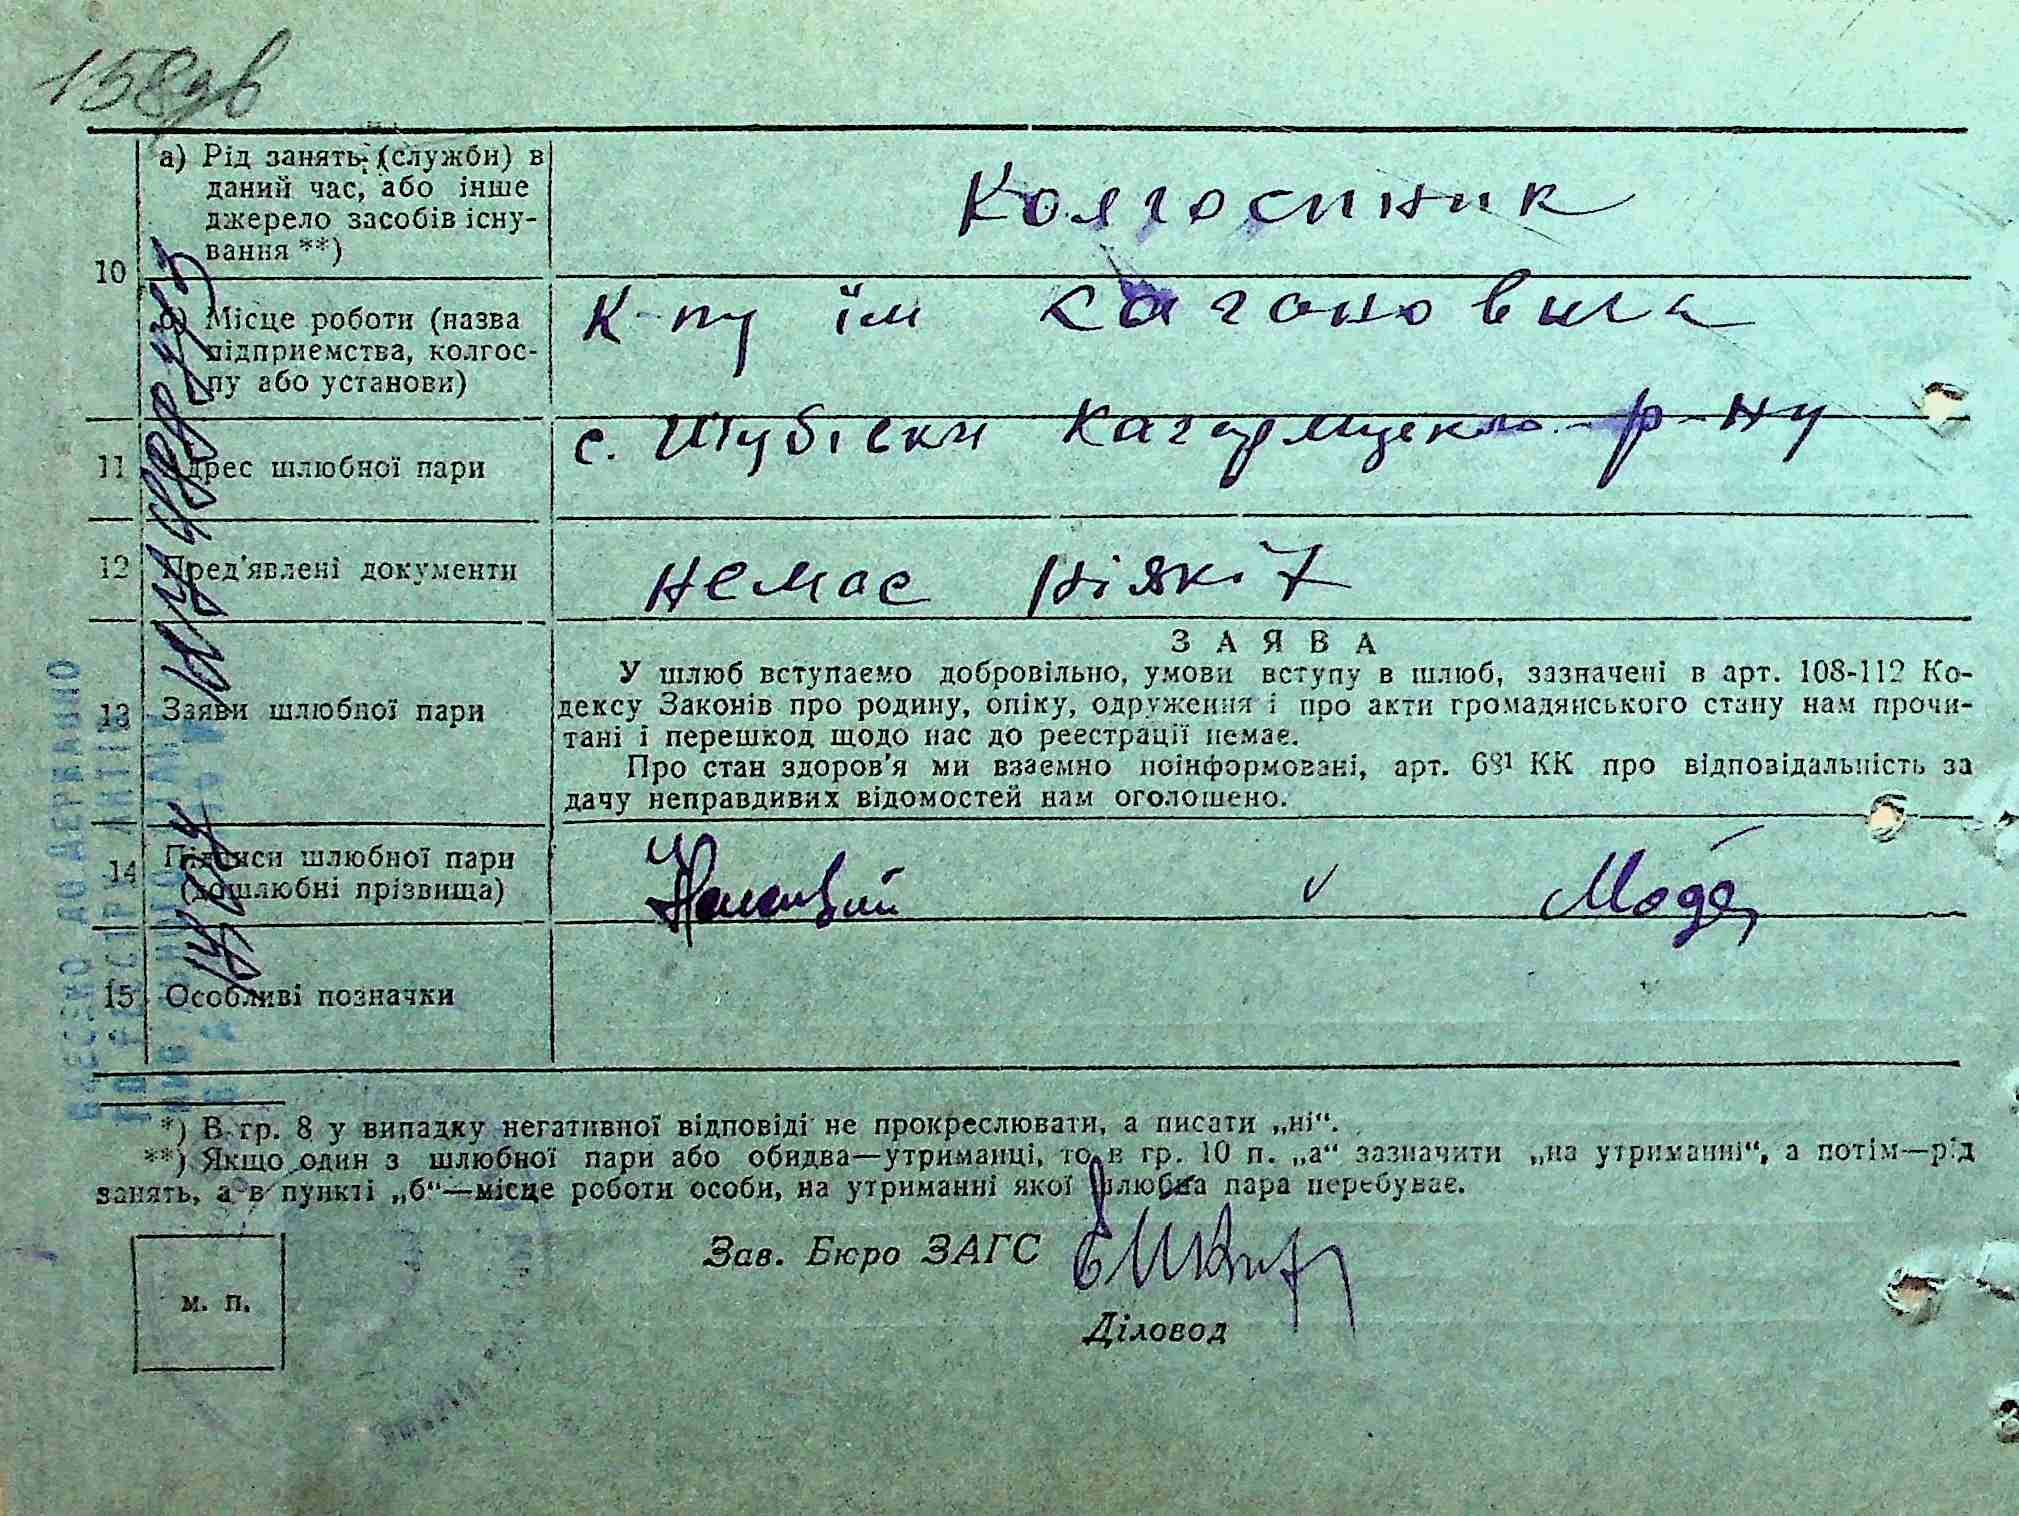 158зв
а) Рід занять (служби) в
даний час, або інше
джерело засобів існу-
вання **)
Колгоспник
10
б) Місце роботи (назва
підприємства, колгос-
пу або установи)
К-пу їм Кагановича
11 Адрес шлюбної пари
с. Шубіски Кагарлицького р-ну
12 Пред'явлені документи
Немає ніяких
13 Заяви шлюбної пари
ЗАЯВА
У шлюб вступаємо добровільно, умови вступу в шлюб, зазначені в арт. 108-112 Ко-
дексу Законів про родину, опіку, одруження і про акти громадянського стану нам прочи-
тані і перешкод щодо нас до реєстрації немає.
Про стан здоров'я ми взаємно поінформовані, арт. 68¹ КК про відповідальність за
дачу неправдивих відомостей нам оголошено.
14 Підписи шлюбної пари
(дошлюбні прізвища)
15 Особливі позначки
ВНЕСЕНО ДО ДЕРЖАВНО
ГО РЕЄСТРУ АКТІВ
*) В гр. 8 у випадку негативної відповіді не прокреслювати, а писати „ні“.
**) Якщо один з шлюбної пари або обидва—утриманці, то в гр. 10 п. „а“ зазначити „на утриманні“, а потім—рід
занять, а в пункті „б“—місце роботи особи, на утриманні якої шлюбна пара перебуває.
Зав. Бюро ЗАГС
Діловод
м. п.